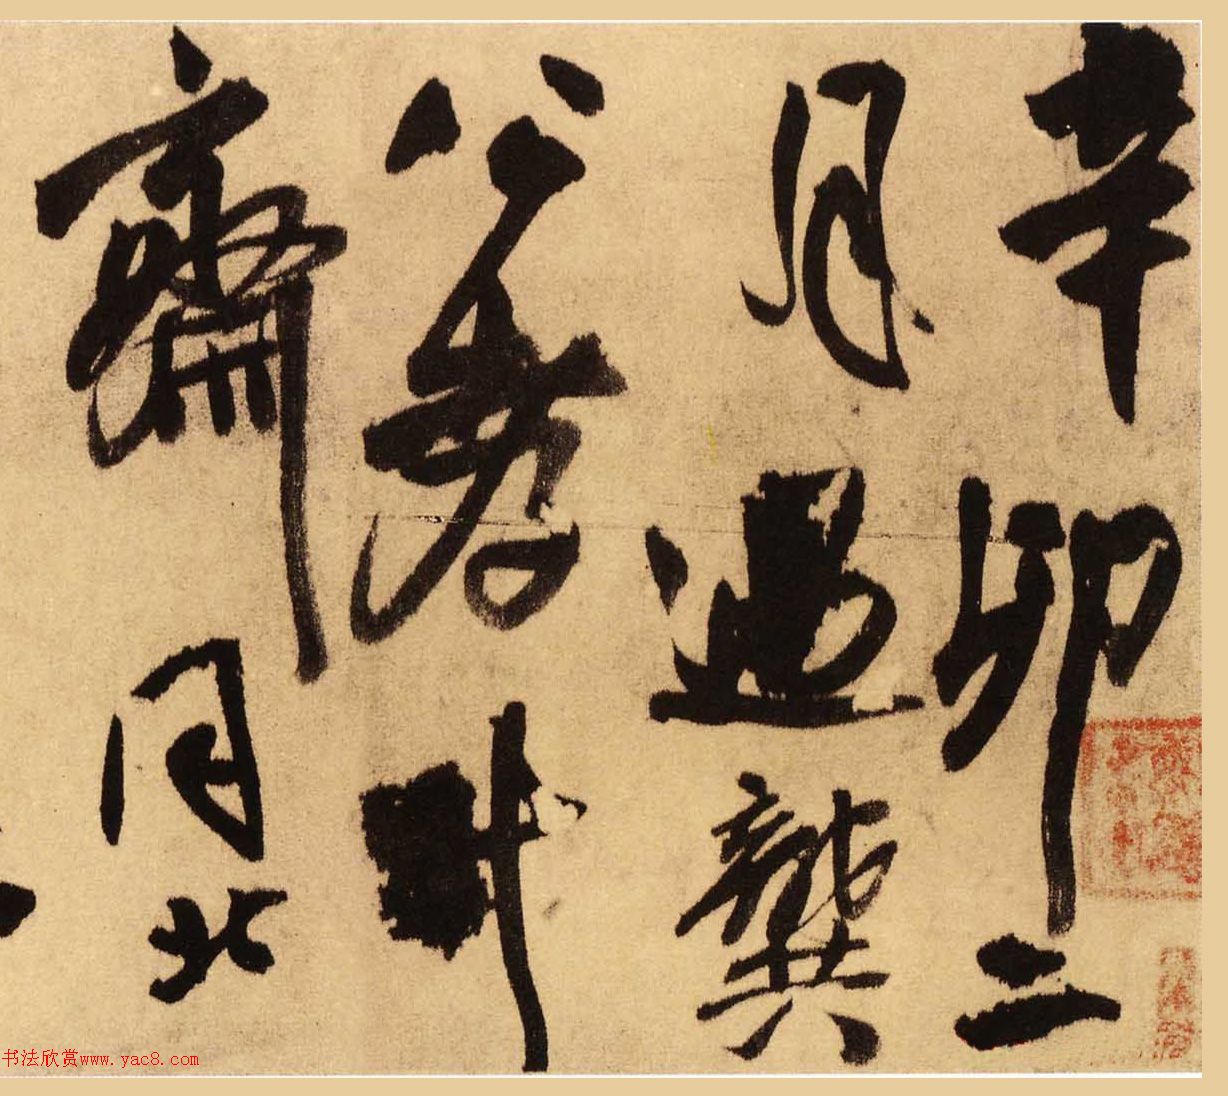 辛卯二
月過龔
公孝升
齋同北
书法欣赏www.yac8.com